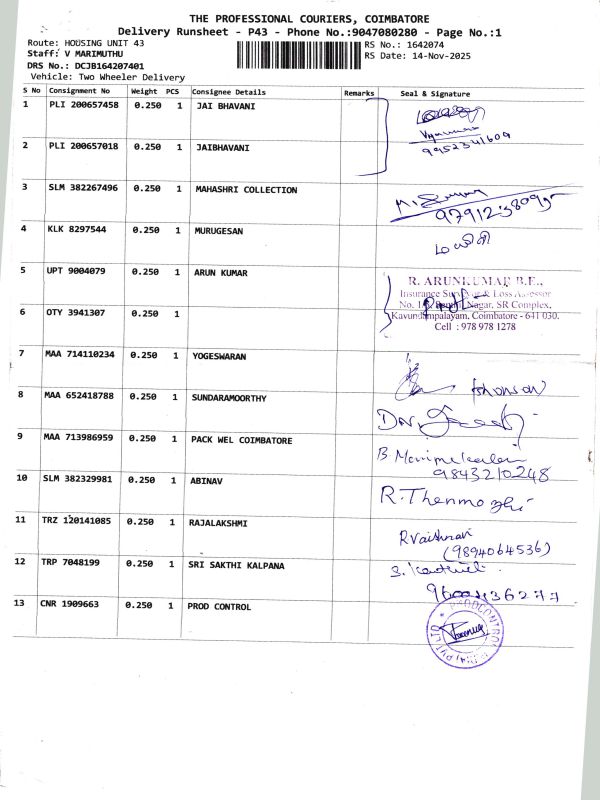 THE PROFESSIONAL COURIERS, COIMBATORE
Delivery Runsheet - P43 - Phone No.:9047080280 - Page No.:1
Route: HOUSING UNIT 43
Staff: V MARIMUTHU
DRS No.: DCJB164207401
Vehicle: Two Wheeler Delivery
RS No.: 1642074
RS Date: 14-Nov-2025
S No Consignment No Weight PCS Consignee Details Remarks Seal & Signature
1 PLI 200657458 0.250 1 JAI BHAVANI
9952341609
2 PLI 200657018 0.250 1 JAIBHAVANI
3 SLM 382267496 0.250 1 MAHASHRI COLLECTION
4 KLK 8297544 0.250 1 MURUGESAN
5 UPT 9004079 0.250 1 ARUN KUMAR
R. ARUNKUMAR B.E.,
Insurance Surveyor & Loss Assessor
Nagar, SR Complex,
Kavundampalayam, Coimbatore - 641 030.
Cell : 978 978 1278
6 OTY 3941307 0.250 1
7 MAA 714110234 0.250 1 YOGESWARAN
8 MAA 652418788 0.250 1 SUNDARAMOORTHY
9 MAA 713986959 0.250 1 PACK WEL COIMBATORE
9843210248
10 SLM 382329981 0.250 1 ABINAV
R. Thenmozhi
11 TRZ 120141085 0.250 1 RAJALAKSHMI
R Vaishnavi
(9894064536)
12 TRP 7048199 0.250 1 SRI SAKTHI KALPANA
S. Karthick
13 CNR 1909663 0.250 1 PROD CONTROL